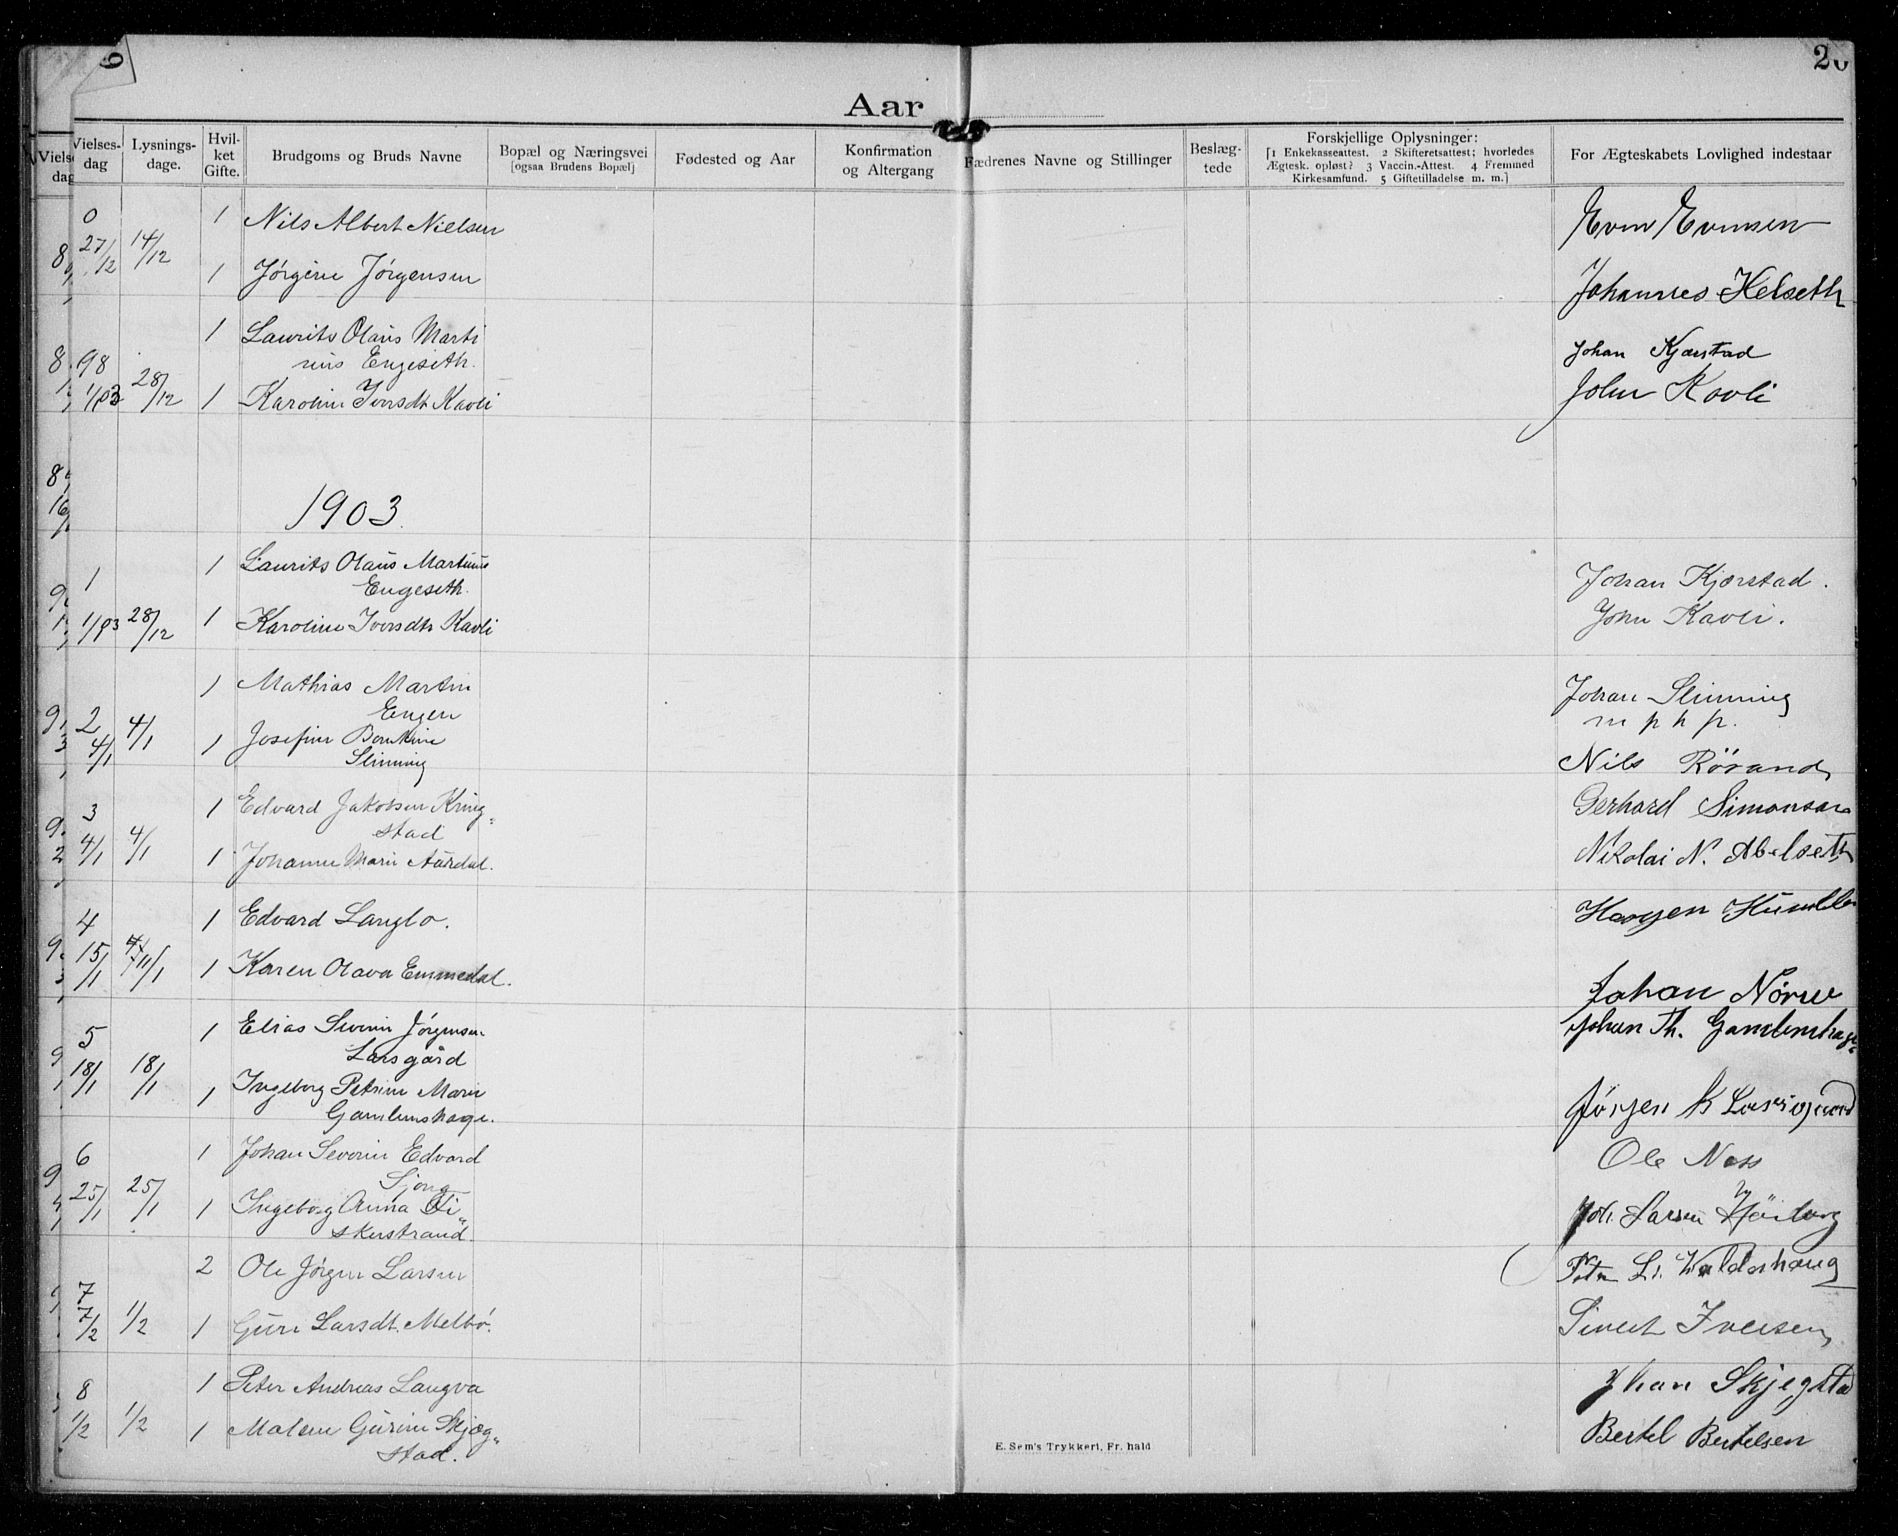 26
Aar
Vielses-
dag
Lysnings-
dage.
Hvil-
ket
Gifte.
Brudgoms og Bruds Navne
Bopæl og Næringsvei
[ogsaa Brudens Bopæl]
Fødested og Aar
Konfirmation
og Altergang
Fædrenes Navne og Stillinger
Beslæg-
tede
Forskjellige Oplysninger:
[1 Enkekasseattest. 2 Skifteretsattest; hvorledes
Ægtesk. opløst? 3 Vaccin.-Attest. 4 Fremmed
Kirkesamfund. 5 Giftetilladelse m. m.]
For Ægteskabets Lovlighed indestaar
27/12 14/12 1 Nils Albert Nielsen
1 Jørgine Jørgensen
Even Evensen
Johannes Helseth
98 1 Laurits Olaus Marti
nius Engeseth.
1/1 03 28/12 1 Karoline Iversdt Kavli
Johan Kjærstad
John Kavli
1903.
1 1 Laurits Olaus Martinus
Engeseth.
1/1 03 28/12 1 Karoline Iversdtr Kavli
Johan Kjærstad.
John Kavli.
2 1 Mathias Martin
Engen
4/1 4/1 1 Josefine
Slinning
Johan Slinning
m p h p.
Nils Rörand
3 1 Edvard Jakobsen Kring-
stad
4/1 4/1 1 Johanne Marie Aurdal.
Gerhard Simonsen
Nikolai N. Abelseth
4 1 Edvard Langlo.
15/1 11/1 1 Karen Olava Emmedal.
Johan Nörve
5 1 Elias Severin Jørgensen
Larsgård
18/1 18/1 1 Ingeborg Petrine Marie
Gamlemshage.
Johan Th. Gamlemshage
Jörgen K Larsgaard
6 1 Johan Severin Edvard
Sjong
25/1 25/1 1 Ingeborg Anna Fi-
skerstrand.
Ole Ness
Joh. Larsen
7 2 Ole Jörgen Larsen
7/2 1/2 1 Guri Larsdt. Melbö.
Peter L. Valderhaug
Sivert Iversen
8 1 Peter Andreas Langva
1/2 1/2 1 Malene Gurine Skjæg-
stad.
Johan Skjegstad
Bertel Bertelsen
E. Sem's Trykkeri, Fr.hald